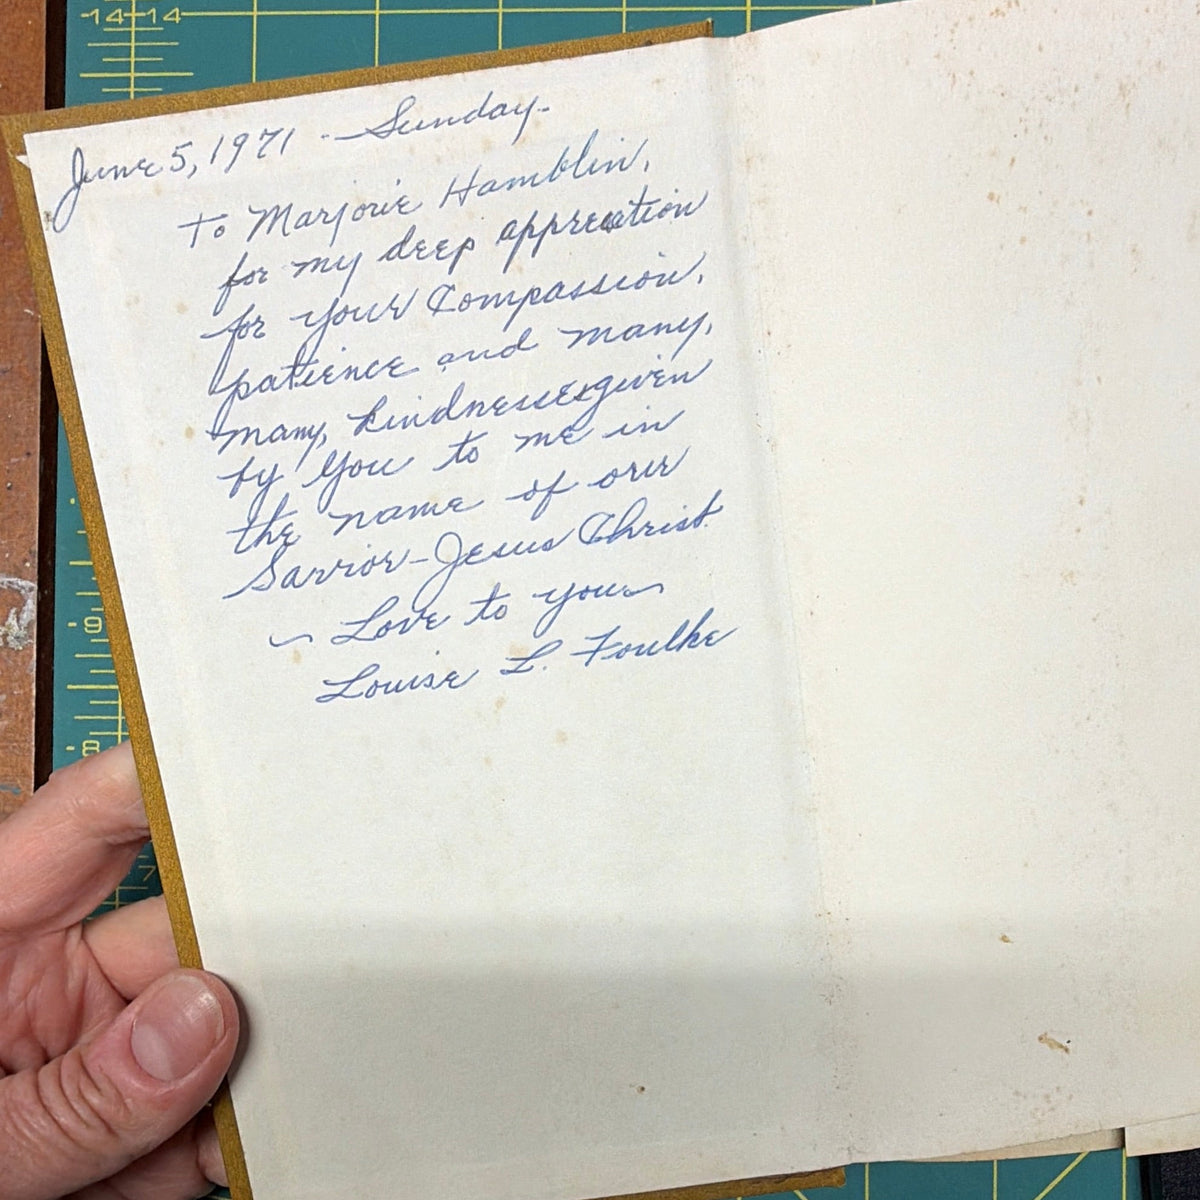 -14 - 14
June 5, 1971 - Sunday -
To Marjorie Hamblin,
for my deep appreciation
for your Compassion,
patience and many,
many, kindnesses given
by you to me in
the name of our
Savior - Jesus Christ
~ Love to you ~
Louise L. Foulke
- 9
- 8
7